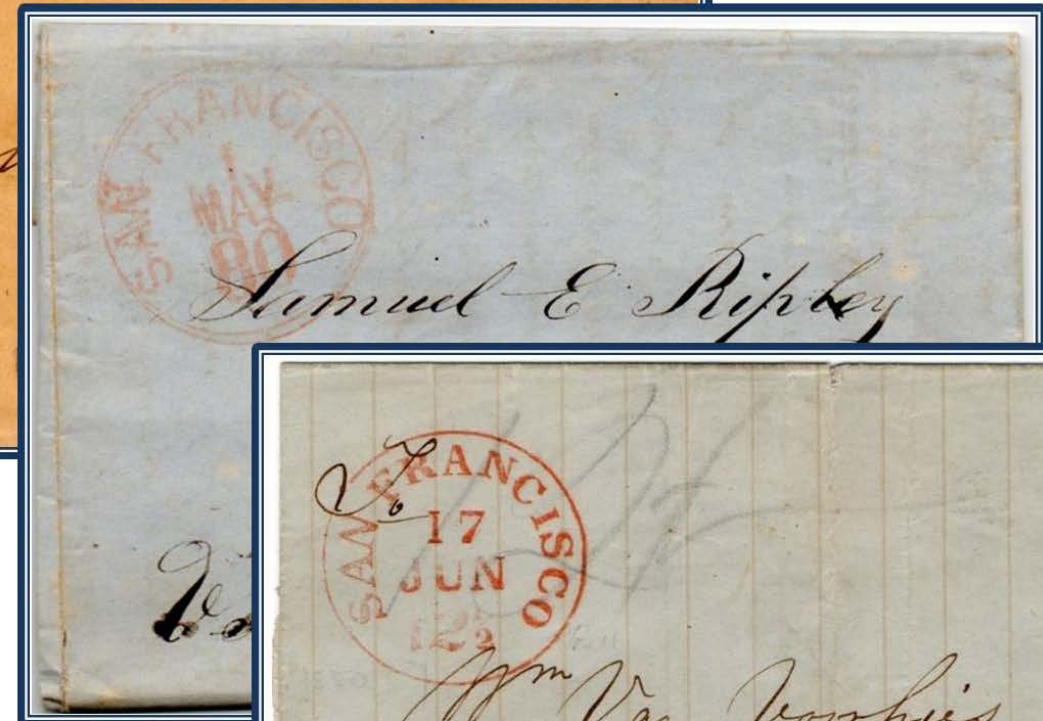 SAN FRANCISCO
1
MAY
80
Samuel E Ripley
SAN FRANCISCO
17
JUN
12½
To
Wm Van Voorhies